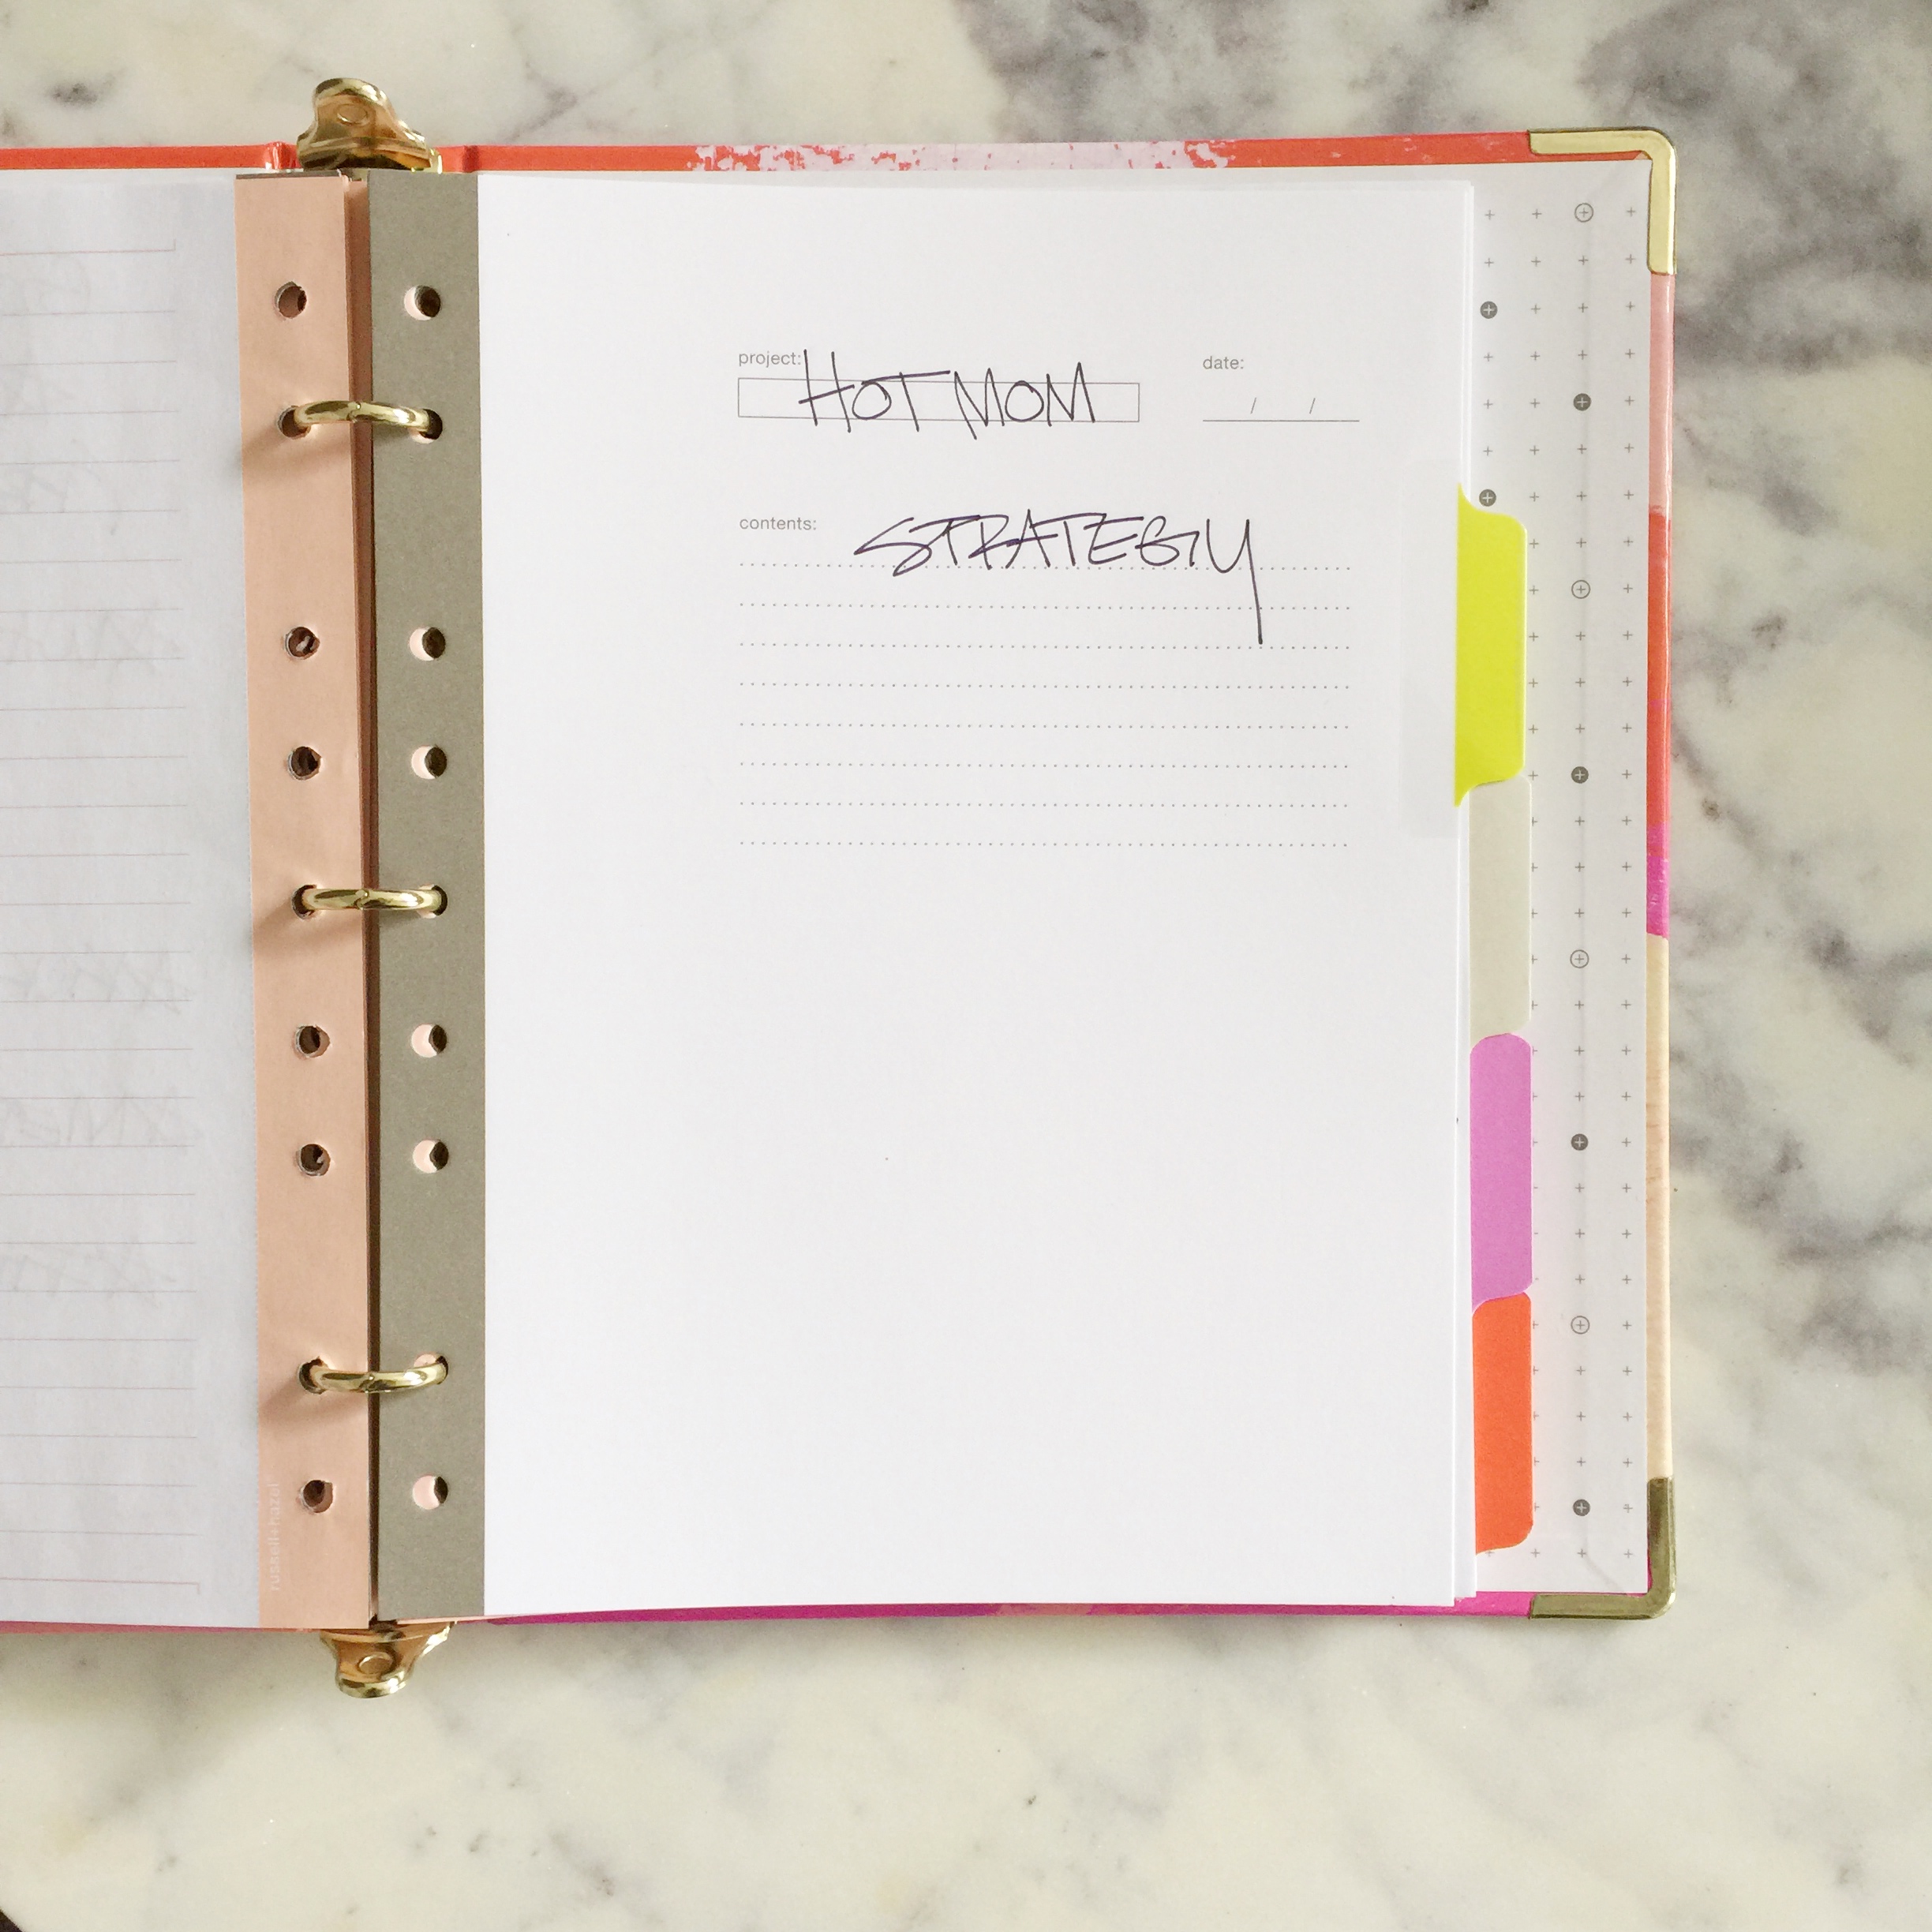 project: HOT MOM
date:
/ /
contents: STRATEGY
russell+hazel